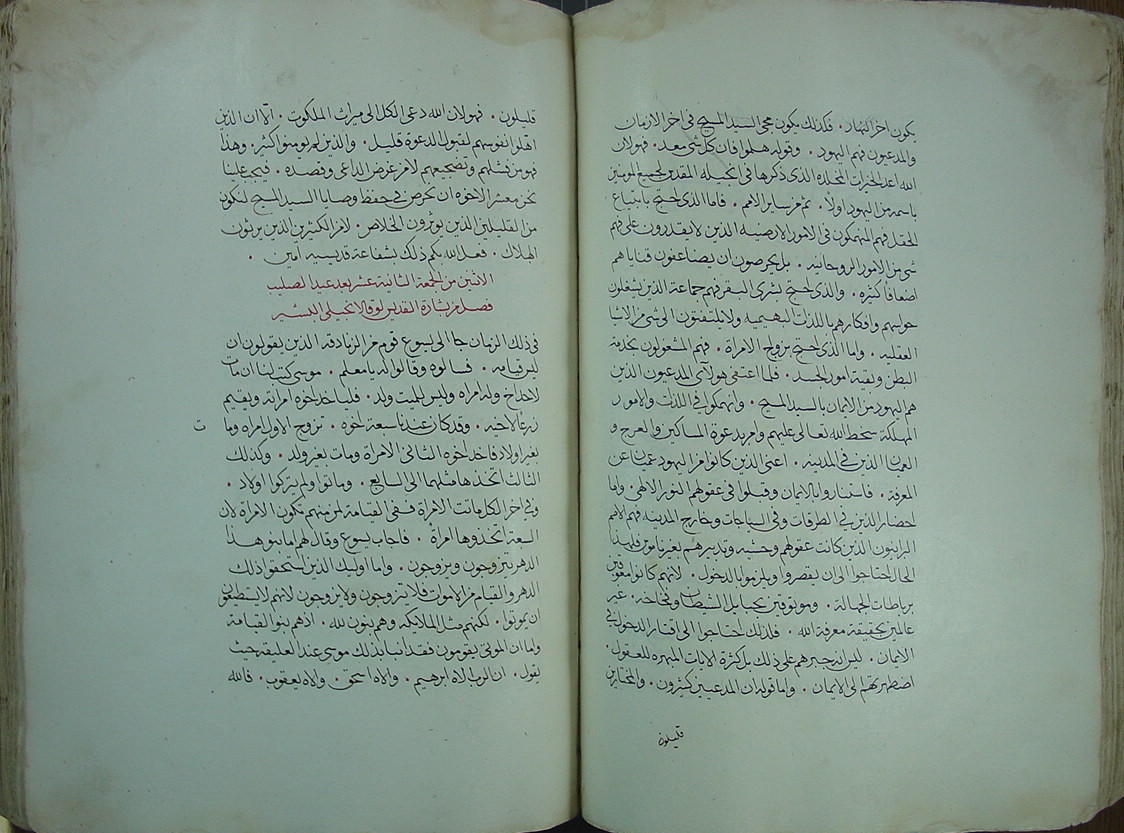 يكون اخر النهار . فلذلك يكون مجي السيد المسيح في اخر الازمان
والمدعيون فهم اليهود . وقوله هلموا فان كل شي معد . فهو لان
الله اعد الخيرات المخلده الذي ذكرها في انجيله المقدس لجميع المومنين
باسمه من اليهود اولاً . ثم من ساير الامم . فاما الذي احتج بابتياع
الحقل فهم المنهمكون في الامور الارضيه الذين لا يقدرون على فهم
شي من الامور الروحانيه . بل يحرصون ان يضاعفون قناياهم
اضعافا كثيره . والذي احتج بشرى البقر فهم جماعة الذين يشغلون
حواسهم وافكارهم باللذات البهيميه ولا يلتفتون الى شي من الاشيا
العقليه . واما الذي احتج بزواج الامراة . فهم المشغولون بخدمة
البطن وبقية امور الجسد . فلما اعتفى هولاى المدعيون الذين
هم اليهود من الايمان بالسيد المسيح . وانهمكوا في اللذات والامور
المهلكة سخط الله تعالى عليهم وامر بدعوة المساكين والعرج و
العميان الذين في المدينه . اعنى الذين كانوا من اليهود عميان عن
المعرفة . فاستناروا بالايمان وقبلوا في عقولهم النور الالهى . واما
احضار الذين في الطرقات وفي السياجات وخارج المدينه فهم الامم
البرانيون الذين كانت عقولهم وحشيه وتدبيرهم بغير ناموس فلهذا
الحال احتاجوا الى ان يقصروا ويلزموا بالدخول . لانهم كانوا معوقين
برباطات الجهالة . وموثوقين بحبايل الشيطان وفخاخه . غير
عالمين بحقيقة معرفة الله . فلذلك احتاجوا الى اقسار الدخول في
الايمان . ليس انه جبرهم على ذلك بل كثرة الايات المبهره للعقول .
اضطهرتهم الى الايمان . واما قوله ان المدعيين كثيرون . والمختارين
قليلون
قليلون . فهو لان الله دعى الكل الى ميراث الملكوت . الا ان الذين
اهلوا نفوسهم لقبول الدعوة قليل . والذين لم يومنوا كثير . وهذا
فهو من فشلهم وتضجيعهم لا من غرض الداعى وقصده . فيجب علينا
نحن معشر الاخوه ان نحرص في حفظ وصايا السيد المسيح لنكون
من القليلين الذين يوثرون الخلاص . لا من الكثيرين الذين يرثون
الهلاك . فعل الله بكم ذلك بشفاعة قديسيه امين .
الاثنين من الجمعة الثانية عشر بعد عيد الصليب
فصل من بشارة القديس لوقا الانجيلى البشير
في ذلك الزمان جا الى يسوع قوم من الزنادقه الذين يقولون ان
ليس قيامه . فسالوه وقالوا له يا معلم . موسى كتب لنا ان مات
لاحد اخ وله امراه وليس للميت ولد . فلياخد اخوه امراته ويقيم
زرعًا لاخيه . وقد كان عندنا سبعة اخوه . تزوج الاول امراه ومات
بغير اولاد فاخد اخوه الثانى الامراة ومات بغير ولد . وكذلك
الثالث اتخذها مثلهما الى السابع . وماتوا ولم يتركوا اولاد .
وفي اخر الكل ماتت الامراة ففي القيامة لمن منهم تكون الامراة لان
السبعة اتخدوها امراة . فاجاب يسوع وقال لهم اما بنو هذا
الدهر يتزوجون ويزوجون . واما اوليك الذين استحقوا ذلك
الدهر والقيام من الاموات فلا تتزوجون ولا يزوجون لانهم لا يستطيعون
ان يموتوا . لكنهم مثل الملايكه وهم بنون لله . اذ هم بنوا القيامة
واما ان الموتى يقومون فقد انبا بذلك موسى عند العليقه حيث
يقول . ان الرب الاه ابرهيم . والاه اسحق . والاه يعقوب . فالله